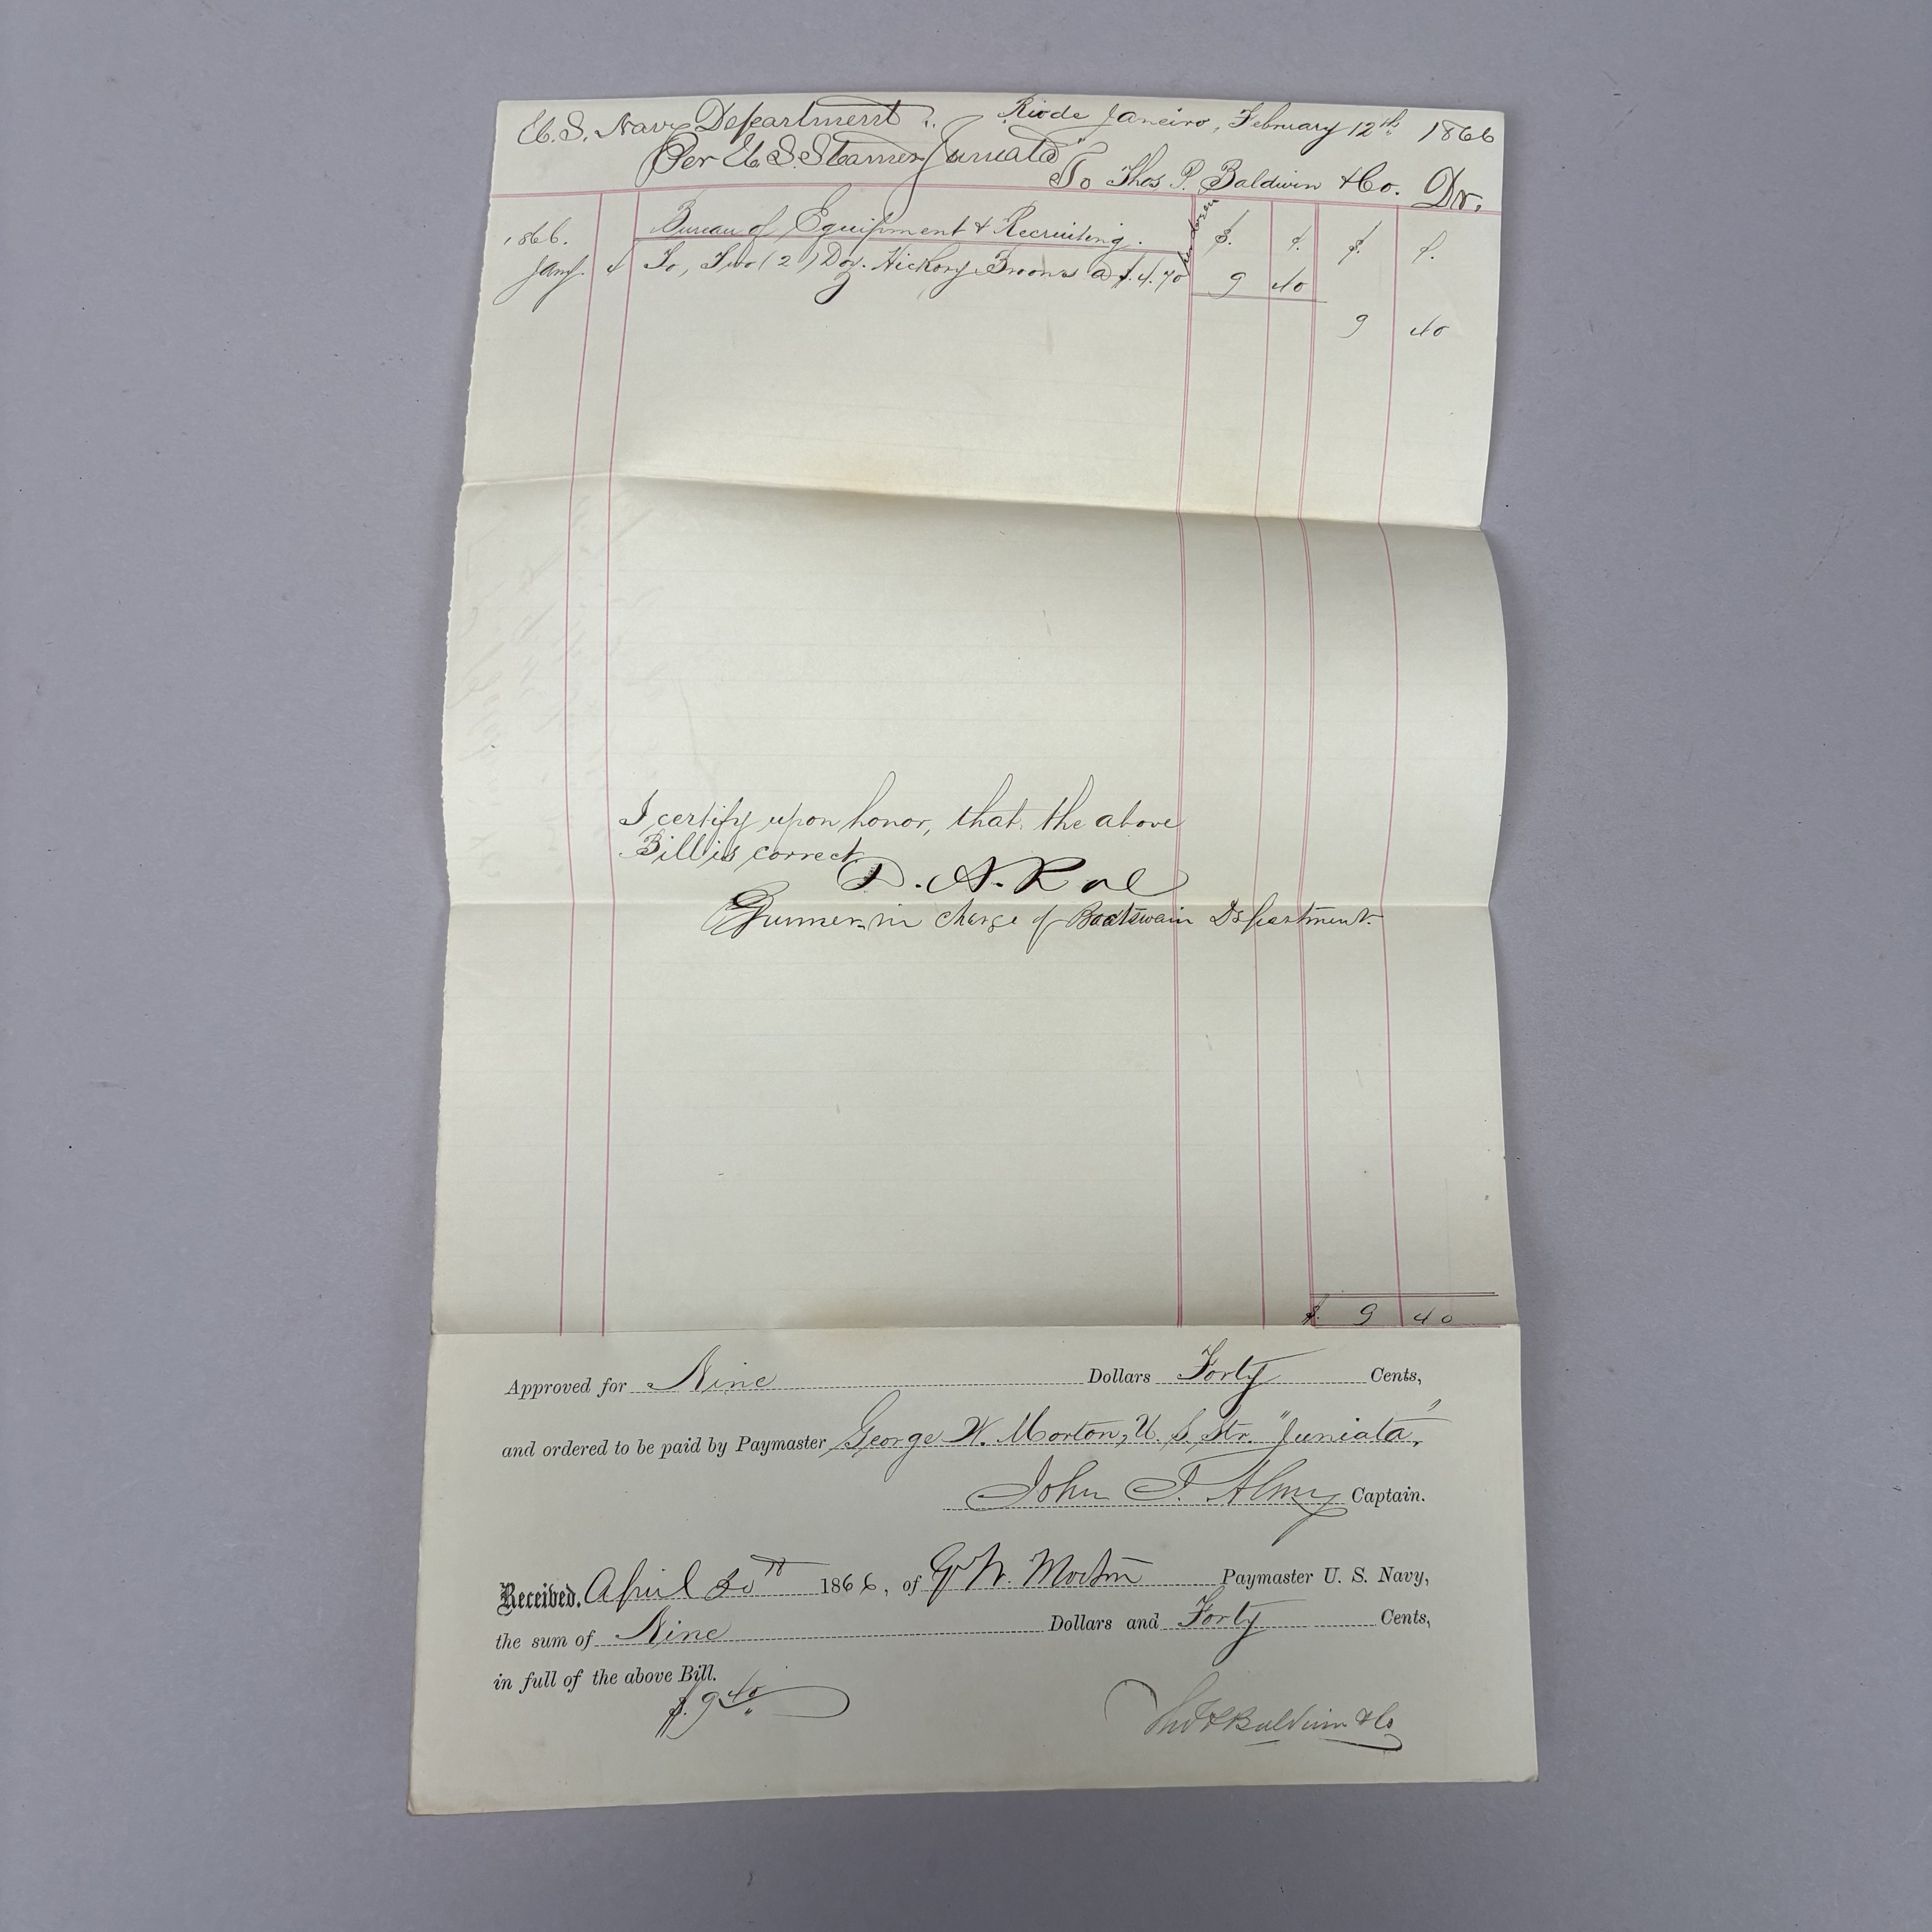 U.S. Navy Department. Rio de Janeiro, February 12th 1866
Per U.S. Steamer "Juniata"
To Thos. P. Baldwin & Co. Dr.
1866. Bureau of Equipment & Recruiting. $. ¢. $. ¢.
Jany. 4 To, Two (2) Doz. Hickory Brooms @ $.4.70 per dozen 9 40
9 40
I certify upon honor, that the above
Bill is correct
D. A. Roe
Gunner in charge of Boatswain Department.
$. 9 40
Approved for Nine Dollars Forty Cents,
and ordered to be paid by Paymaster George W. Morton, U. S. Str. "Juniata",
John J. Almy Captain.
Received, April 30th 1866, of G W. Morton Paymaster U. S. Navy,
the sum of Nine Dollars and Forty Cents,
in full of the above Bill.
$. 9 40
Thos P Baldwin & Co